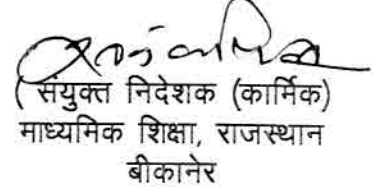 ( संयुक्त निदेशक (कार्मिक)
माध्यमिक शिक्षा, राजस्थान
बीकानेर